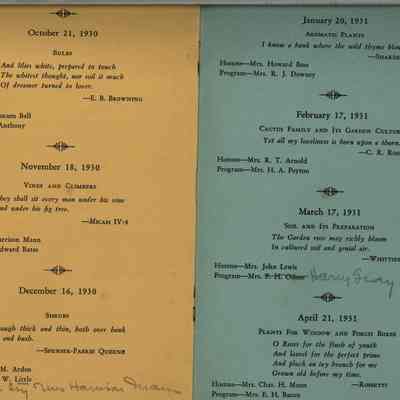 October 21, 1930
BULBS
And lilies white, prepared to touch
The whitest thought, nor soil it much
Of dreamer turned to lover.
—E. B. BROWNING
Ball
Anthony
November 18, 1930
VINES AND CLIMBERS
they shall sit every man under his vine
and under his fig tree.
—MICAH IV-4
Harrison Mann
Edward Bates
December 16, 1930
SHRUBS
through thick and thin, both over bank
and bush.
—SPENSER-FAERIE QUEENE
M. Arden
W. Little
by Mrs Harrison Mann
January 20, 1931
AROMATIC PLANTS
I know a bank where the wild thyme blow
—SHAKES
Hostess—Mrs. Howard Bess
Program—Mrs. R. J. Downey
February 17, 1931
CACTUS FAMILY AND ITS GARDEN CULTUR
Yet all my loveliness is born upon a thorn.
—C. R. ROS
Hostess—Mrs. R. T. Arnold
Program—Mrs. H. A. Peyton
March 17, 1931
SOIL AND ITS PREPARATION
The Garden rose may richly bloom
In cultured soil and genial air.
—WHITTIE
Hostess—Mrs. John Lewis
Program—Mrs. F. H. Harry
April 21, 1931
PLANTS FOR WINDOW AND PORCH BOXES
O Roses for the flush of youth
And laurel for the perfect prime
And pluck an ivy branch for me
Grown old before my time.
—ROSSETTI
Hostess—Mrs. Chas. H. Moon
Program—Mrs. E. H. Bacon